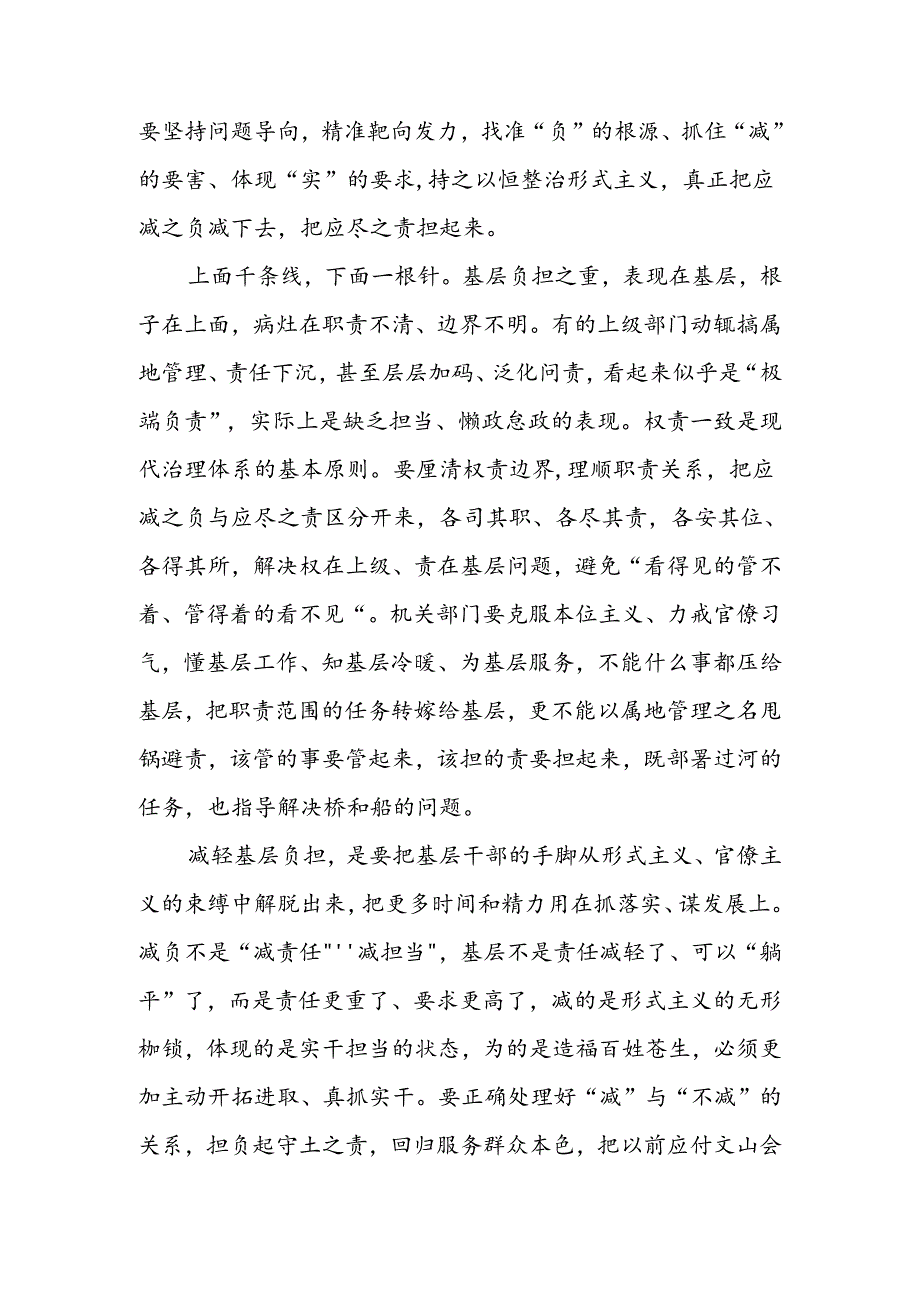 要坚持问题导向，精准靶向发力，找准“负”的根源、抓住“减”
的要害、体现“实”的要求,持之以恒整治形式主义，真正把应
减之负减下去，把应尽之责担起来。
上面千条线，下面一根针。基层负担之重，表现在基层，根
子在上面，病灶在职责不清、边界不明。有的上级部门动辄搞属
地管理、责任下沉，甚至层层加码、泛化问责，看起来似乎是“极
端负责”，实际上是缺乏担当、懒政怠政的表现。权责一致是现
代治理体系的基本原则。要厘清权责边界,理顺职责关系，把应
减之负与应尽之责区分开来，各司其职、各尽其责，各安其位、
各得其所，解决权在上级、责在基层问题，避免“看得见的管不
着、管得着的看不见“。机关部门要克服本位主义、力戒官僚习
气，懂基层工作、知基层冷暖、为基层服务，不能什么事都压给
基层，把职责范围的任务转嫁给基层，更不能以属地管理之名甩
锅避责，该管的事要管起来，该担的责要担起来，既部署过河的
任务，也指导解决桥和船的问题。
减轻基层负担，是要把基层干部的手脚从形式主义、官僚主
义的束缚中解脱出来,把更多时间和精力用在抓落实、谋发展上。
减负不是“减责任"''减担当"，基层不是责任减轻了、可以“躺
平”了，而是责任更重了、要求更高了，减的是形式主义的无形
枷锁，体现的是实干担当的状态，为的是造福百姓苍生，必须更
加主动开拓进取、真抓实干。要正确处理好“减”与“不减”的
关系，担负起守土之责，回归服务群众本色，把以前应付文山会